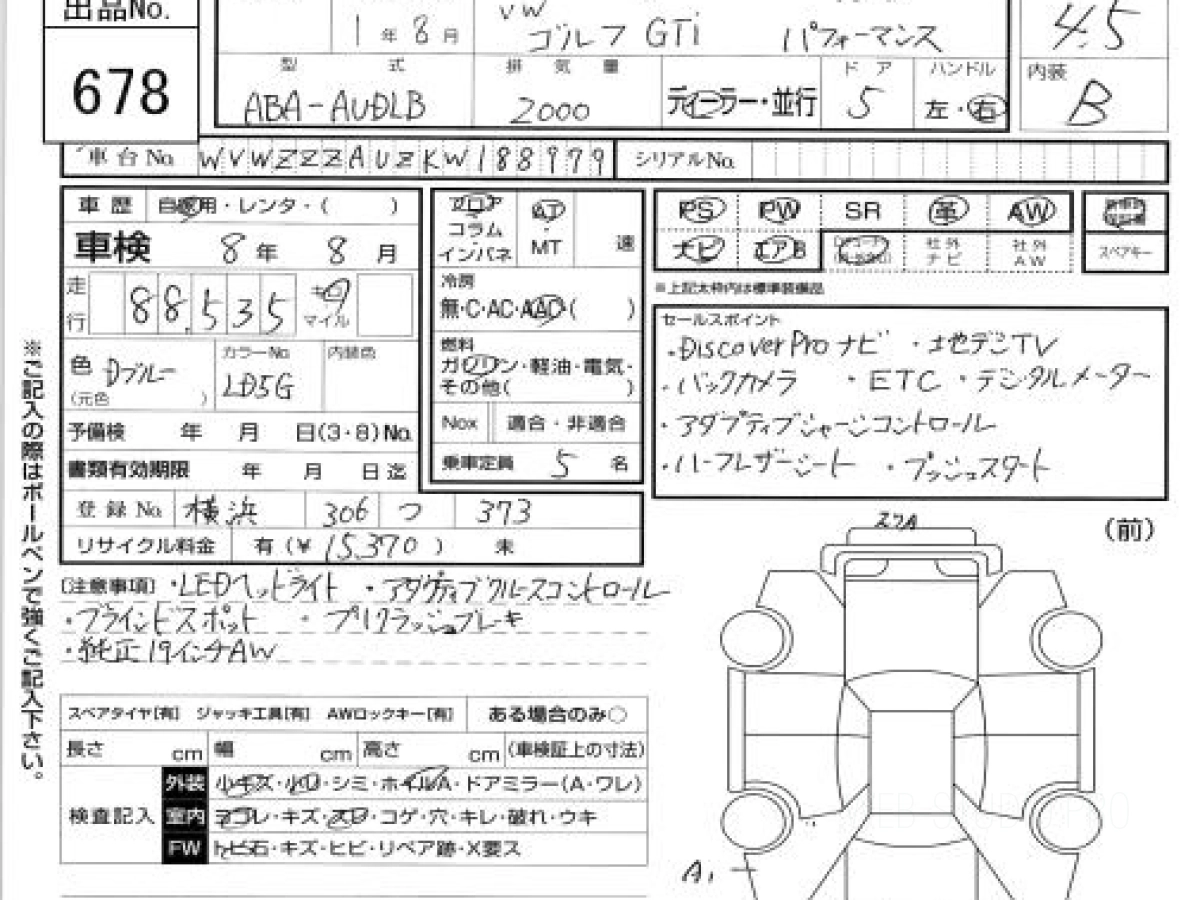 出品No.
678
1 年 8 月
VW
ゴルフ GTi パフォーマンス
4.5
型 式
ABA-AUDLB
排 気 量
2000
ディーラー・並行
ドア
5
ハンドル
左・右
内装
B
車台No. WVWZZZAUZKW188979
シリアルNo.
車歴 自家用・レンタ・( )
車検 8年 8月
走行 88,535 キロ マイル
色 Dブルー
(元色 )
カラーNo
LD5G
内装色
予備検 年 月 日(3・8)No.
書類有効期限 年 月 日迄
登録No. 横浜 306 つ 373
リサイクル料金 有(¥15,370) 未
フロア
コラム
インパネ
AT
MT 速
冷房
無・C・AC・AAC( )
燃料
ガソリン・軽油・電気・
その他( )
Nox 適合・非適合
乗車定員 5 名
PS PW SR 革 AW
ナビ エアB 社外ナビ 社外AW
スペアキー
※上記太枠内は標準装備品
セールスポイント
・Discover Pro ナビ ・地デジTV
・バックカメラ ・ETC ・デジタルメーター
・アダプティブシャーシコントロール
・ハーフレザーシート ・プッシュスタート
※ご記入の際はボールペンで強くご記入下さい。
[注意事項] ・LEDヘッドライト ・アダプティブクルーズコントロール
・ブラインドスポット ・プリクラッシュブレーキ
・純正19インチAW
スペアタイヤ[有] ジャッキ工具[有] AWロックキー[有] ある場合のみ○
長さ cm 幅 cm 高さ cm (車検証上の寸法)
検査記入
外装 小キズ・小凹・シミ・ホイルA・ドアミラー(A・ワレ)
室内 ヨゴレ・キズ・スレ・コゲ・穴・キレ・破れ・ウキ
FW トビ石・キズ・ヒビ・リペア跡・X要ス
(前)
A1